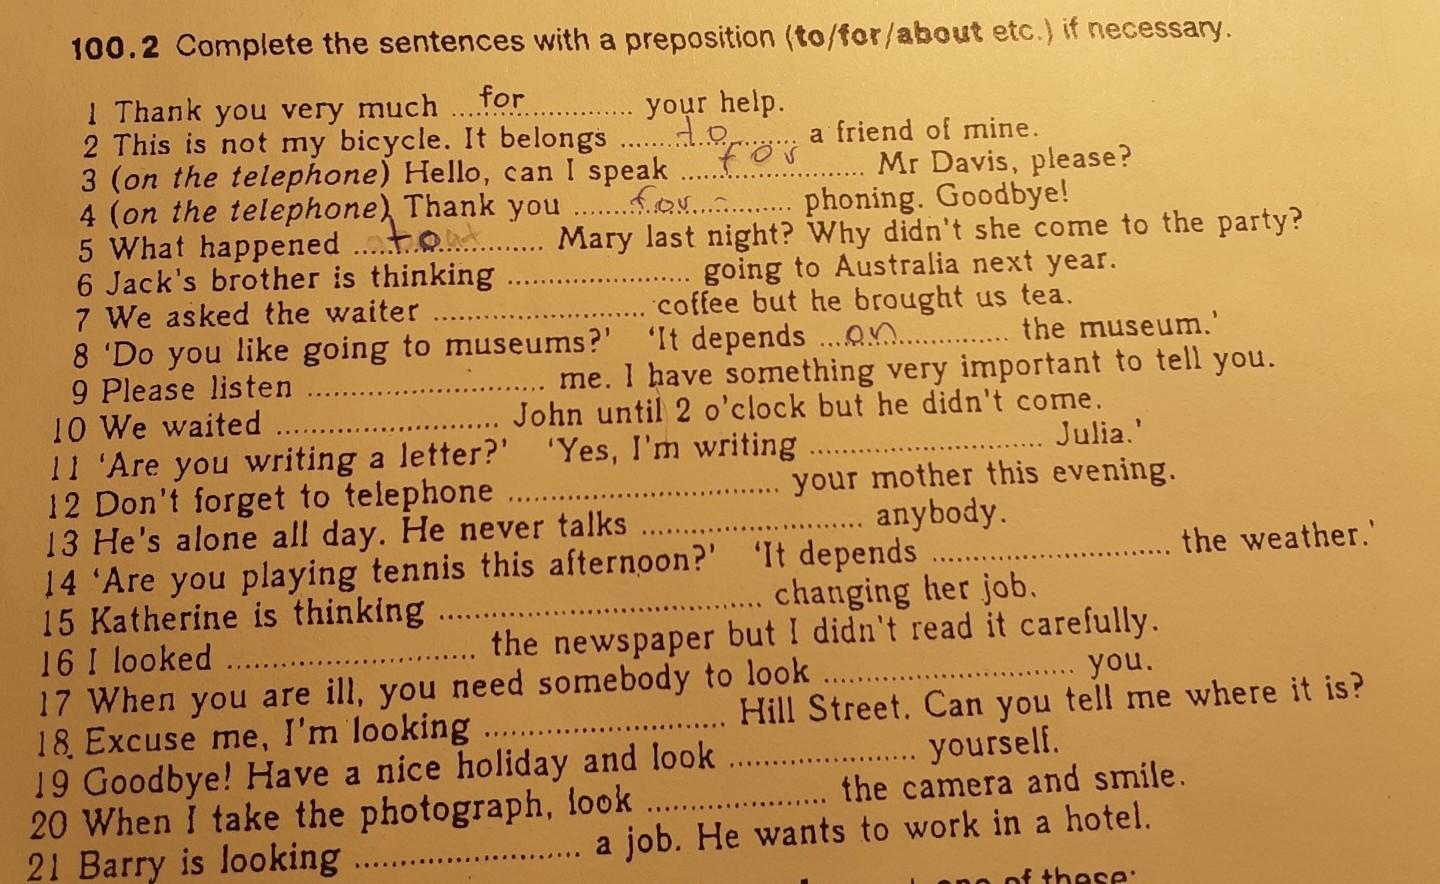 100.2 Complete the sentences with a preposition (to/for/about etc.) if necessary.
1 Thank you very much ...for............ your help.
2 This is not my bicycle. It belongs .......to....... a friend of mine.
3 (on the telephone) Hello, can I speak .....for......... Mr Davis, please?
4 (on the telephone) Thank you .......for.......... phoning. Goodbye!
5 What happened ....to............ Mary last night? Why didn't she come to the party?
6 Jack's brother is thinking ...................... going to Australia next year.
7 We asked the waiter .......................... coffee but he brought us tea.
8 'Do you like going to museums?' 'It depends ...on.............. the museum.'
9 Please listen ............................ me. I have something very important to tell you.
10 We waited ........................... John until 2 o'clock but he didn't come.
11 'Are you writing a letter?' 'Yes, I'm writing ............................ Julia.'
12 Don't forget to telephone ................................. your mother this evening.
13 He's alone all day. He never talks ........................... anybody.
14 'Are you playing tennis this afternoon?' 'It depends ............................. the weather.'
15 Katherine is thinking ....................................... changing her job.
16 I looked .............................. the newspaper but I didn't read it carefully.
17 When you are ill, you need somebody to look .............................. you.
18 Excuse me, I'm looking ............................. Hill Street. Can you tell me where it is?
19 Goodbye! Have a nice holiday and look ....................... yourself.
20 When I take the photograph, look ...................... the camera and smile.
21 Barry is looking ........................... a job. He wants to work in a hotel.
one of these: